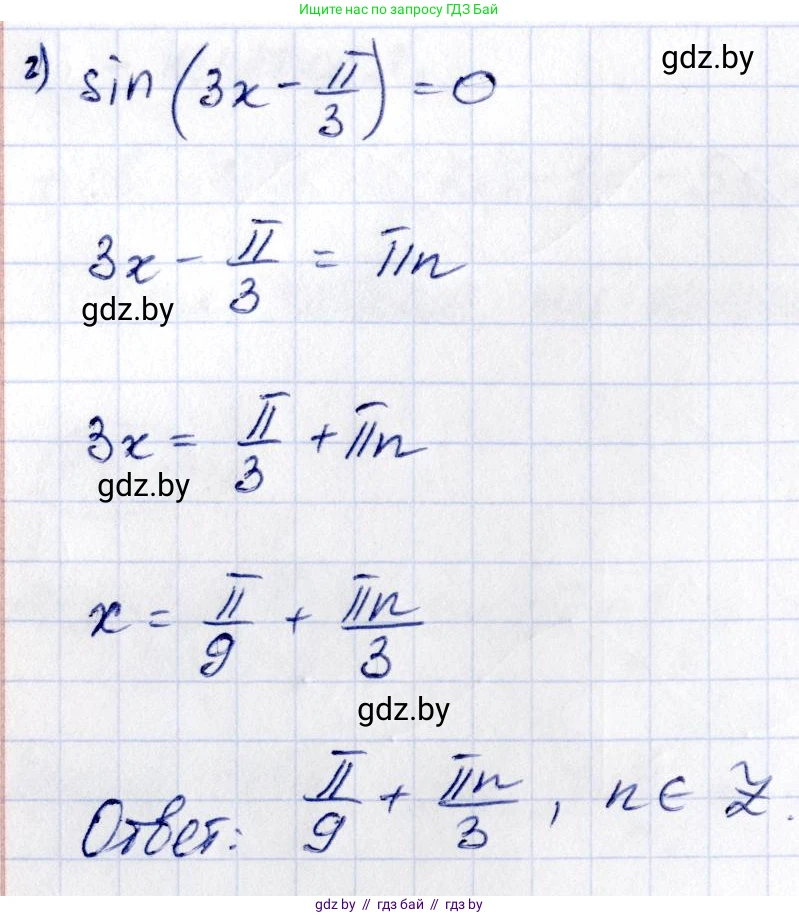 Ищите нас по запросу ГДЗ Бай
г) sin(3x - π/3) = 0
gdz.by
3x - π/3 = πn
gdz.by
3x = π/3 + πn
gdz.by
x = π/9 + πn/3
gdz.by
Ответ: π/9 + πn/3, n ∈ Z.
gdz.by // гдз бай // gdz.by